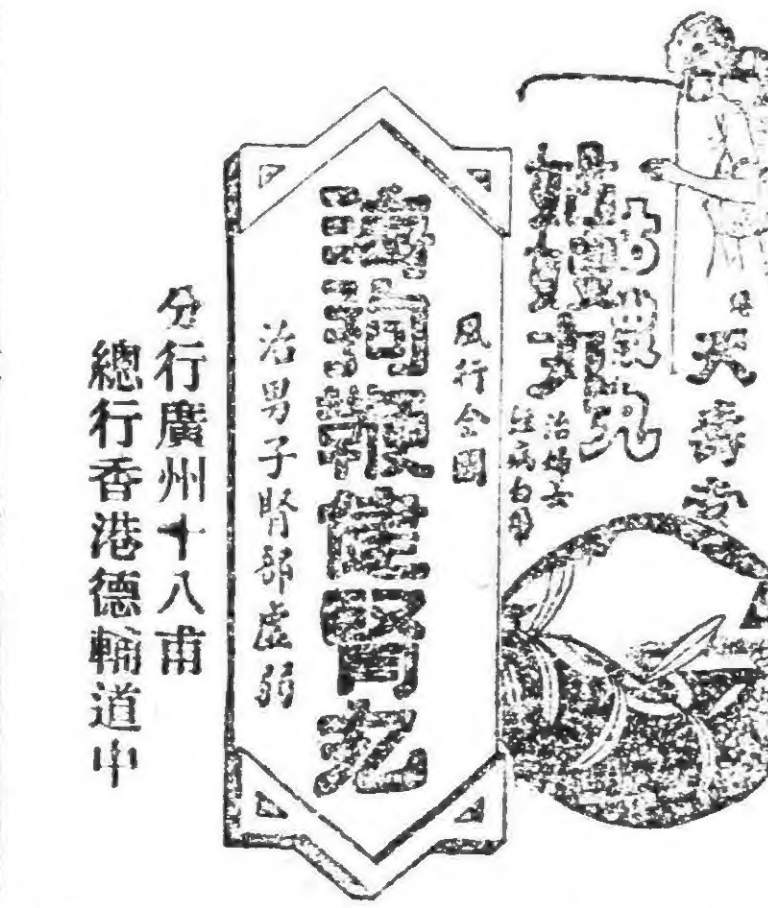 天壽
姑嫂丸
治婦女
經病白帶
風行全國
海狗鞭健腎丸
治男子腎部虛弱
分行廣州十八甫
總行香港德輔道中